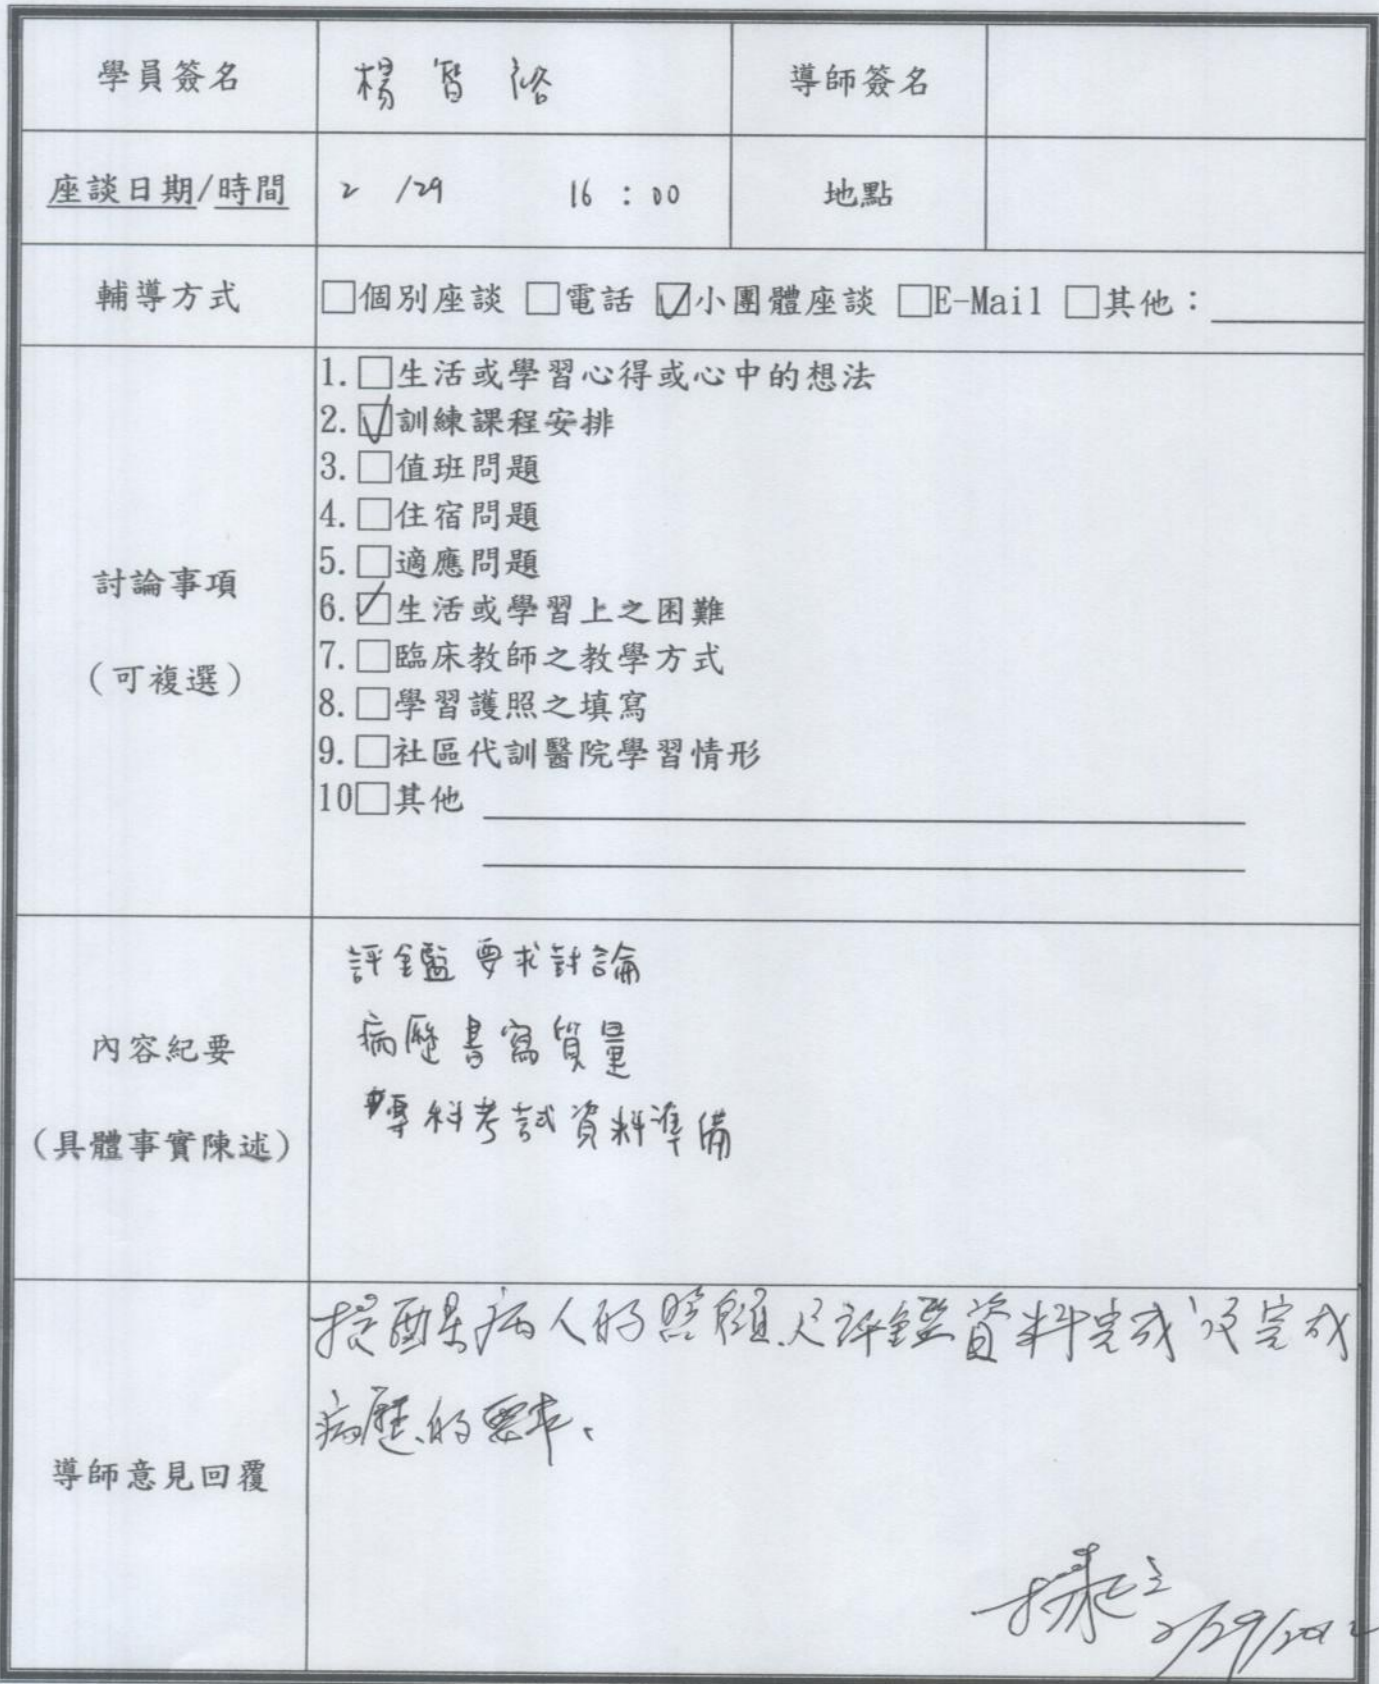 學員簽名 楊智裕 導師簽名
座談日期/時間 2 /29 16 : 00 地點
輔導方式 □個別座談 □電話 ☑小團體座談 □E-Mail □其他：
1.□生活或學習心得或心中的想法
2.☑訓練課程安排
3.□值班問題
4.□住宿問題
5.□適應問題
6.☑生活或學習上之困難
7.□臨床教師之教學方式
8.□學習護照之填寫
9.□社區代訓醫院學習情形
10□其他
討論事項
(可複選)
評鑑要求討論
病歷書寫質量
專科考試資料準備
內容紀要
(具體事實陳述)
提醒病人的照顧及評鑑資料完成及完成
病歷的要求、
導師意見回覆
2/29/2012